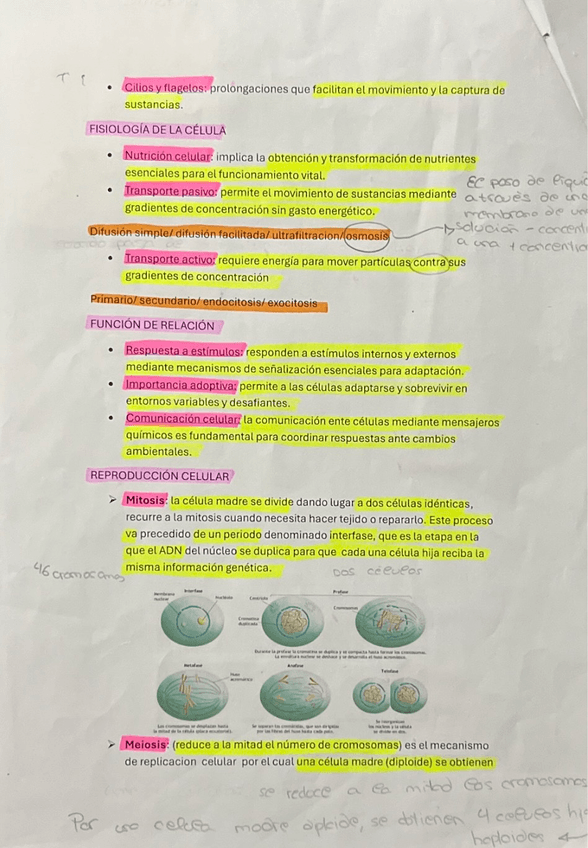 T
• Cilios y flagelos: prolongaciones que facilitan el movimiento y la captura de
sustancias.
FISIOLOGÍA DE LA CÉLULA
• Nutrición celular: implica la obtención y transformación de nutrientes
esenciales para el funcionamiento vital.
• Transporte pasivo: permite el movimiento de sustancias mediante
gradientes de concentración sin gasto energético.
El paso de líqui
a través de una
membrana de u
solución - concent
a una + concentra
Difusión simple/ difusión facilitada/ ultrafiltracion/osmosis
• Transporte activo: requiere energía para mover partículas contra sus
gradientes de concentración
Primario/ secundario/ endocitosis/ exocitosis
FUNCIÓN DE RELACIÓN
• Respuesta a estímulos: responden a estímulos internos y externos
mediante mecanismos de señalización esenciales para adaptación.
• Importancia adoptiva: permite a las células adaptarse y sobrevivir en
entornos variables y desafiantes.
• Comunicación celular: la comunicación ente células mediante mensajeros
químicos es fundamental para coordinar respuestas ante cambios
ambientales.
REPRODUCCIÓN CELULAR
➢ Mitosis: la célula madre se divide dando lugar a dos células idénticas,
recurre a la mitosis cuando necesita hacer tejido o repararlo. Este proceso
va precedido de un periodo denominado interfase, que es la etapa en la
que el ADN del núcleo se duplica para que cada una célula hija reciba la
misma información genética.
46 cromosomas
dos células
Interfase
Profase
Membrana
nuclear
Nucléolo
Centriolo
Cromosomas
Cromatina
duplicada
Durante la profase la cromatina se duplica y se compacta hasta formar los cromosomas.
La envoltura nuclear se deshace y se desarrolla el huso acromático.
Metafase
Anafase
Telofase
Huso
acromático
Los cromosomas se desplazan hasta
la mitad de la célula (placa ecuatorial).
Se separan las cromátidas, que son dirigidas
por las fibras del huso hasta cada polo.
Se reorganizan
los núcleos y la célula
se divide en dos.
➢ Meiosis: (reduce a la mitad el número de cromosomas) es el mecanismo
de replicacion celular por el cual una célula madre (diploide) se obtienen
se reduce a la mitad los cromosomas
Por una célula madre diploide, se obtienen 4 células hi
haploides